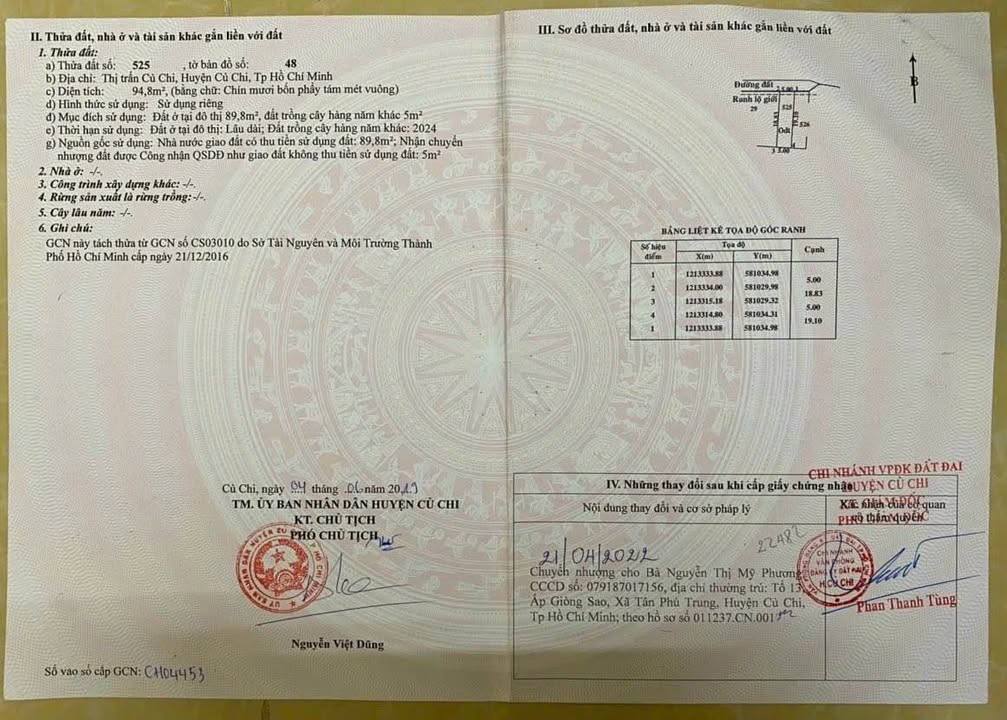 II. Thửa đất, nhà ở và tài sản khác gắn liền với đất
1. Thửa đất:
a) Thửa đất số: 525 , tờ bản đồ số: 48
b) Địa chỉ: Thị trấn Củ Chi, Huyện Củ Chi, Tp Hồ Chí Minh
c) Diện tích: 94,8m², (bằng chữ: Chín mươi bốn phẩy tám mét vuông)
d) Hình thức sử dụng: Sử dụng riêng
đ) Mục đích sử dụng: Đất ở tại đô thị 89,8m², đất trồng cây hàng năm khác 5m²
e) Thời hạn sử dụng: Đất ở tại đô thị: Lâu dài; Đất trồng cây hàng năm khác: 2024
g) Nguồn gốc sử dụng: Nhà nước giao đất có thu tiền sử dụng đất: 89,8m²; Nhận chuyển
nhượng đất được Công nhận QSDĐ như giao đất không thu tiền sử dụng đất: 5m²
2. Nhà ở: -/-.
3. Công trình xây dựng khác: -/-.
4. Rừng sản xuất là rừng trồng: -/-.
5. Cây lâu năm: -/-.
6. Ghi chú:
GCN này tách thửa từ GCN số CS03010 do Sở Tài Nguyên và Môi Trường Thành
Phố Hồ Chí Minh cấp ngày 21/12/2016
Củ Chi, ngày 04 tháng 06 năm 2019
TM. ỦY BAN NHÂN DÂN HUYỆN CỦ CHI
KT. CHỦ TỊCH
PHÓ CHỦ TỊCH
Nguyễn Việt Dũng
Số vào sổ cấp GCN: CH04453
III. Sơ đồ thửa đất, nhà ở và tài sản khác gắn liền với đất
B
Đường đất 2 5.00 1
Ranh lộ giới
29
525
18.83
19.10
526
Odt
3 5.00 4
BẢNG LIỆT KÊ TỌA ĐỘ GÓC RANH
Số hiệu điểm Tọa độ Cạnh
X(m) Y(m)
1 1213333.88 581034.98
5.00
2 1213334.00 581029.98
18.83
3 1213315.18 581029.32
5.00
4 1213314.80 581034.31
19.10
1 1213333.88 581034.98
CHI NHÁNH VPĐK ĐẤT ĐAI
HUYỆN CỦ CHI
KT. GIÁM ĐỐC
PHÓ GIÁM ĐỐC
IV. Những thay đổi sau khi cấp giấy chứng nhận
Nội dung thay đổi và cơ sở pháp lý
Xác nhận của cơ quan
có thẩm quyền
22482
21/04/2022
Chuyển nhượng cho Bà Nguyễn Thị Mỹ Phương,
CCCD số: 079187017156, địa chỉ thường trú: Tổ 13,
Ấp Giòng Sao, Xã Tân Phú Trung, Huyện Củ Chi,
Tp Hồ Chí Minh; theo hồ sơ số 011237.CN.001
CHI NHÁNH
VĂN PHÒNG
ĐĂNG KÝ ĐẤT ĐAI
H.CỦ CHI
Phan Thanh Tùng